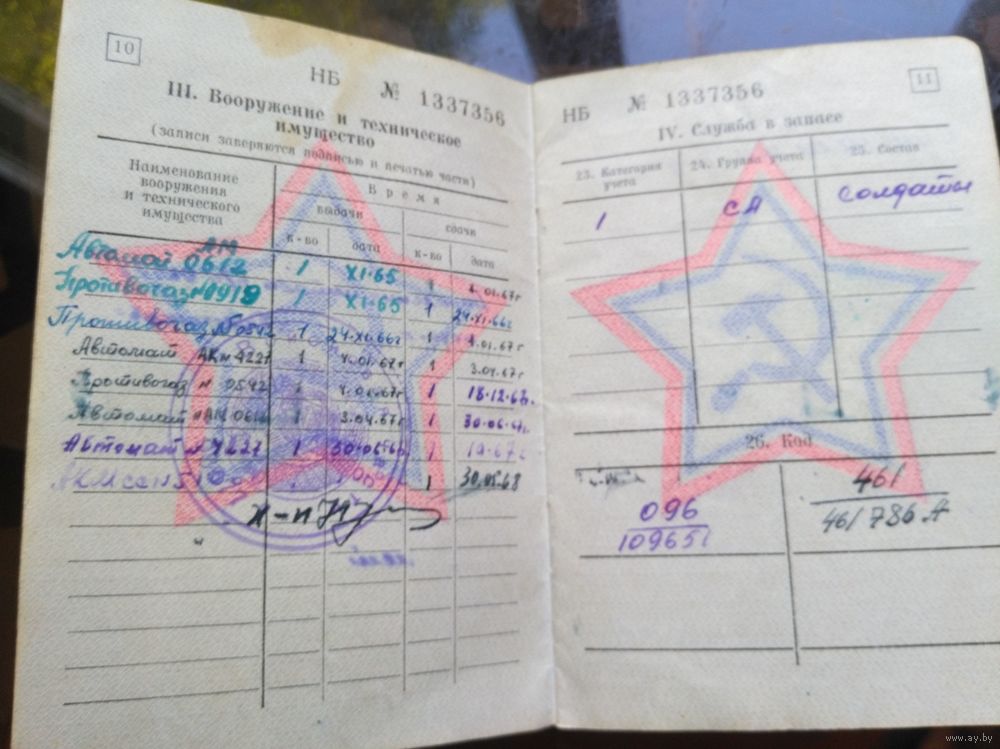 10
НБ № 1337356
III. Вооружение и техническое
имущество
(записи заверяются подписью и печатью части)
Наименование
вооружения
и технического
имущества
Время
выдачи
сдачи
к-во
дата
к-во
дата
АМ
Автомат 0612 1 XI-65 1 4.01.67г
Противогаз №1919 1 XI-65 1 24-XI-66г
Противогаз № 0542 1 24-XI-66г 1 4.01.67г
Автомат АКм 4227 1 4.01.67г 1 3.04.67г
Противогаз № 0542 1 4.01.67г 1 18-12-67г.
Автомат 1 3.04.67г 1 30-06-67г.
Автомат № 4227 1 30-06-67
1 30.05.68
11
НБ № 1337356
IV. Служба в запасе
23. Категория
учета
24. Группа учета
25. Состав
1 СА солдаты
26. Код
096
109651
461
461786 А
www.ay.by